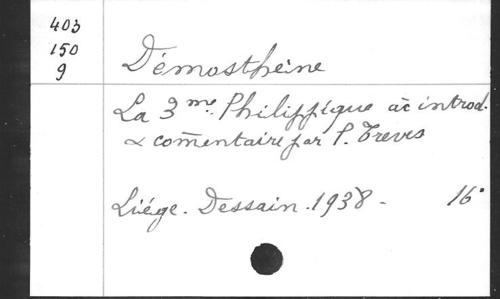 403
150
9
Démosthène
La 3me Philippique àc introd.
& com̄entaire par P. Treves
Liége. Dessain. 1938 - 16°